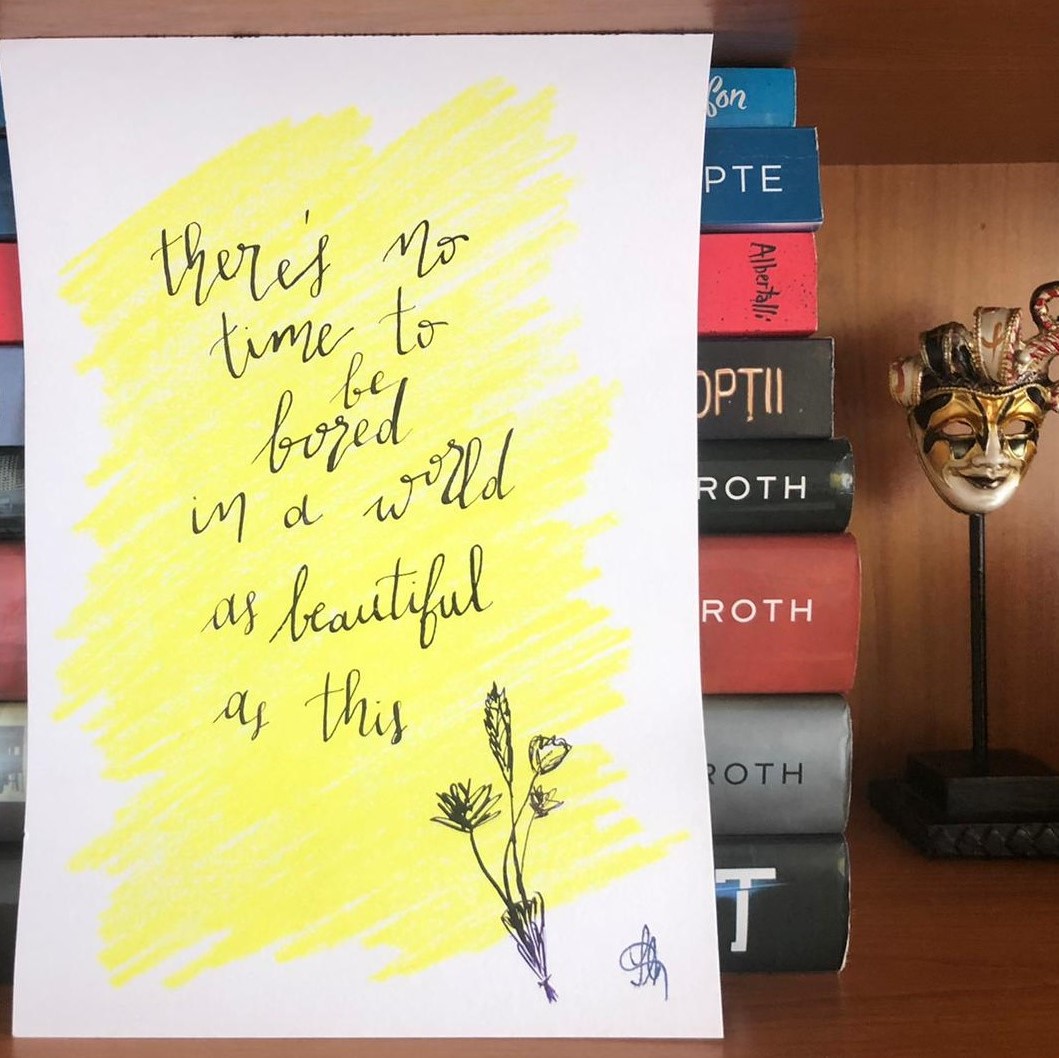 there's no
time to
be
bored
in a world
as beautiful
as this
fon
PTE
Albertalli
OPȚII
ROTH
ROTH
ROTH
T